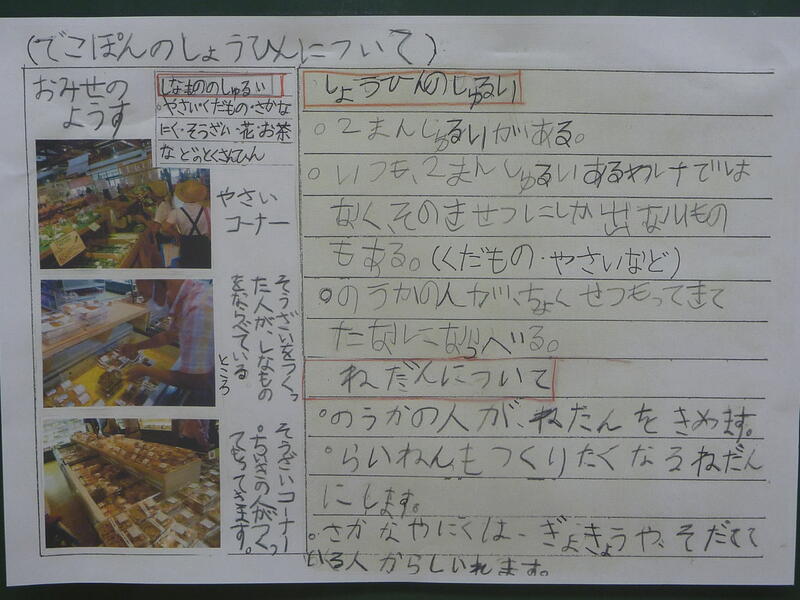 (でこぽんのしょうひんについて)
おみせの
ようす
しなもののしゅるい
◦やさい・くだもの・さかな
にく・そうざい・花・お茶
などのとくさんひん
やさい
コーナー
そうざいをつくっ
た人が、しなもの
をならべている
ところ
そうざいコーナー
◦ちいきの人がつくっ
てもってきます。
しょうひんのしゅるい
◦2まんしゅるいがある。
◦いつも、2まんしゅるいあるわけでは
なく、そのきせつにしか出ないもの
もある。(くだもの・やさいなど)
◦のうかの人が、ちょくせつもってきて
たなにならべる。
ねだんについて
◦のうかの人が、ねだんをきめます。
◦らいねんもつくりたくなるねだん
にします。
◦さかなやにくは、ぎょきょうや、そだてて
いる人からしいれます。